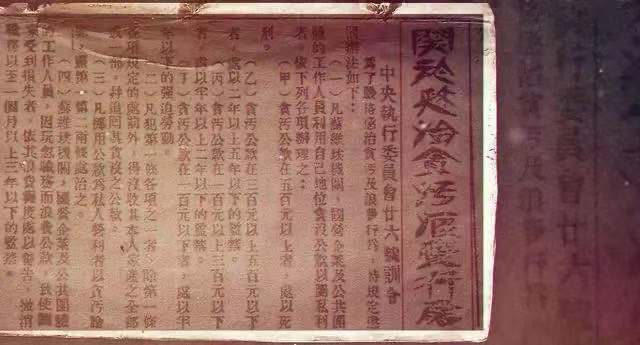 關於懲治貪污浪費行為
中央執行委員會廿六號訓令
為了嚴格懲治貪污及浪費行為，特規定懲
罰辦法如下：
（一）凡蘇維埃機關，國營企業及公共團
體的工作人員利用自己地位貪沒公款以圖私利
者，依下列各項辦理之：
（甲）貪污公款在五百元以上者，處以死
刑。
（乙）貪污公款在三百元以上五百元以下
者，處以二年以上五年以下的監禁。
（丙）貪污公款在一百元以上三百元以下
者，處以半年以上二年以下的監禁。
（丁）貪污公款在一百元以下者，處以半
年以下的強迫勞動。
（二）凡犯第一條各項之一者，除第一條
各項規定的處罰外，得沒收其本人家產之全部
或一部，并追回其貪沒之公款。
（三）凡挪用公款為私人營利者以貪污論
罪，照第一第二兩條處治之。
（四）蘇維埃機關，國營企業及公共團體
的工作人員，因玩忽職務而浪費公款，致使國
家受到損失者，依其浪費程度處以警告，撤消
職務以至一個月以上三年以下的監禁。